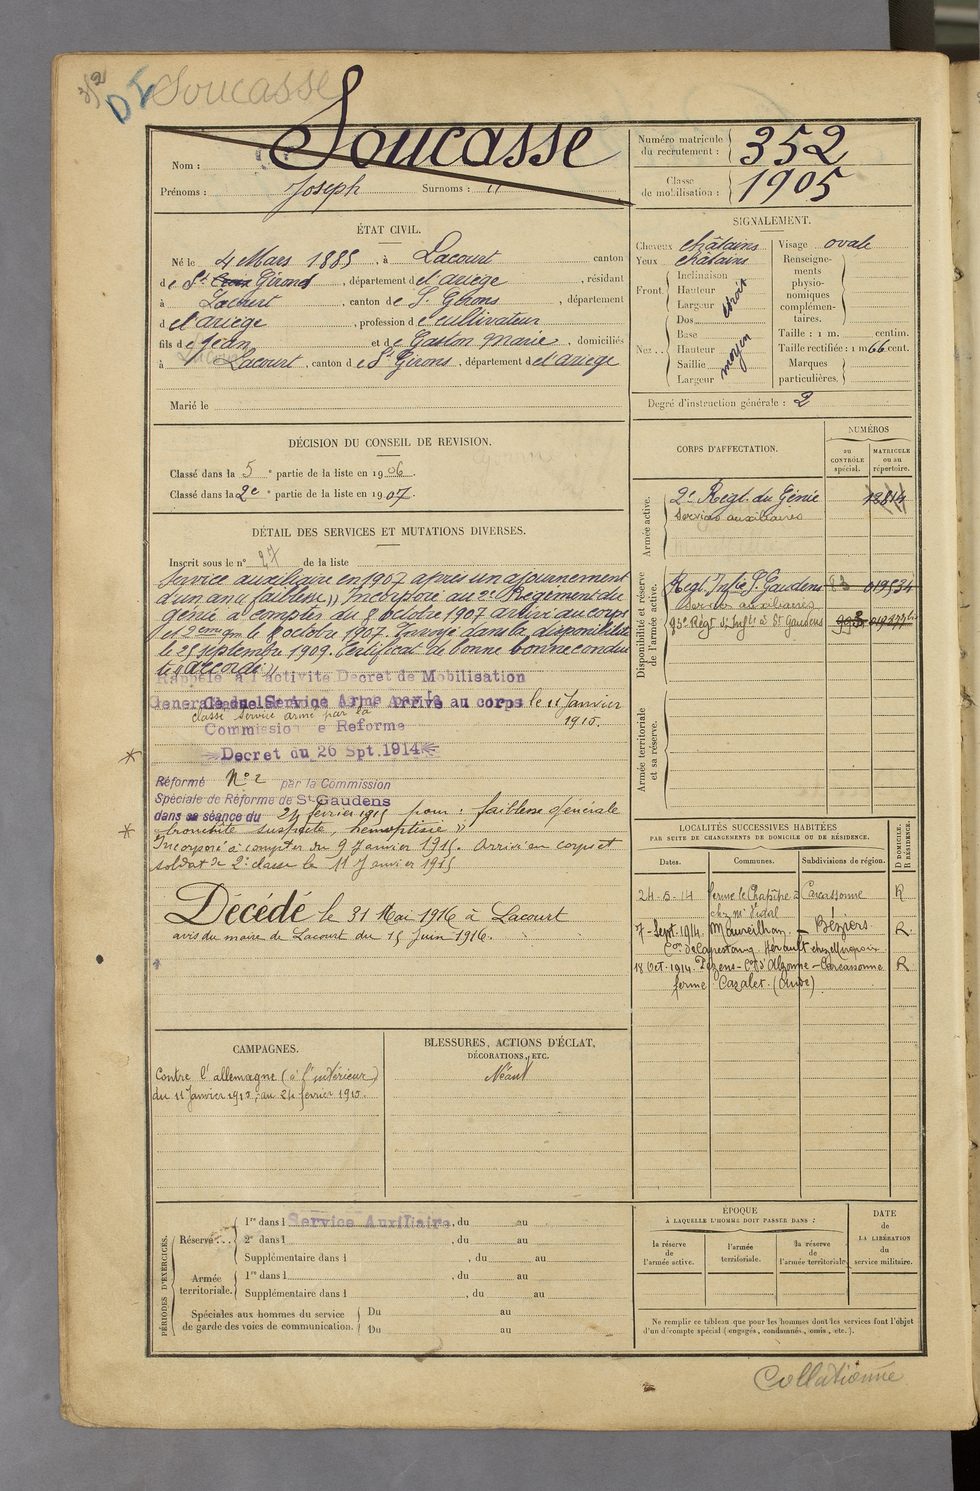 352
DI Soucasse
Nom : Soucasse
Prénoms : Joseph Surnoms : "
Numéro matricule du recrutement : 352
Classe de mobilisation : 1905
ÉTAT CIVIL.
Né le 4 Mars 1885, à Lacourt canton
de St Croix Girons, département d'ariège, résidant
à Lacourt, canton de St Girons, département
d'ariège, profession de cultivateur
fils de Jean et de Gaston Marie, domiciliés
à Lacourt, canton de St Girons, département d'ariège
Marié le
SIGNALEMENT.
Cheveux châtains
Yeux châtains
Front
Inclinaison
Hauteur
Largeur
étroit
Nez
Dos
Base
Hauteur
Saillie
Largeur
moyen
Visage ovale
Renseigne-
ments
physio-
nomiques
complémen-
taires.
Taille : 1 m. centim.
Taille rectifiée : 1 m 66 cent.
Marques
particulières.
Degré d'instruction générale : 2
DÉCISION DU CONSEIL DE REVISION.
Classé dans la 5e partie de la liste en 1906.
Classé dans la 2e partie de la liste en 1907.
DÉTAIL DES SERVICES ET MUTATIONS DIVERSES.
Inscrit sous le n° 27 de la liste
Service auxiliaire en 1907 après un ajournement
d'un an (faiblesse)) Incorporé au 2e Régiment du
génie à compter du 8 octobre 1907 arrivé au corps
et 2eme gm le 8 octobre 1907. Envoyé dans la disponibilité
le 25 septembre 1909. Certificat de bonne bonne condui
te "accordé"
Rappelé à l'activité Decret de Mobilisation
Arrivé au corps le 11 Janvier
1915.
Classé service armé par la
Commission de Reforme
Decret du 26 Spt. 1914
Réformé N° 2 par la Commission
Spéciale de Réforme de St Gaudens
dans sa séance du 24 février 1915 pour : faiblesse générale
bronchite suspecte, hémoptisie "
Incorporé à compter du 9 Janvier 1915. Arrivé au corps et
soldat de 2e classe le 11 Janvier 1915
Décédé le 31 Mai 1916 à Lacourt
avis du maire de Lacourt du 15 Juin 1916.
CORPS D'AFFECTATION.
NUMÉROS
au CONTRÔLE spécial.
MATRICULE ou au répertoire.
Armée active.
2e Regt. du Génie 12814
Services auxiliaires
Disponibilité et réserve de l'armée active.
Regt Infie St Gaudens 83 019534
Services auxiliaires
83e Régt d'Infie à St Gaudens
Armée territoriale et sa réserve.
LOCALITÉS SUCCESSIVES HABITÉES
PAR SUITE DE CHANGEMENTS DE DOMICILE OU DE RÉSIDENCE.
Dates. Communes. Subdivisions de région. D DOMICILE. R RÉSIDENCE.
24-5-14 ferme le Chapitre à Carcassonne R
chez Mr Vidal
7-Sept. 1914. Maureilhan - Béziers. R.
Con de Capestang Hérault chez
18 Oct. 1914. Pezens - Con d'Alzonne - Carcassonne R
ferme Cazalet. (Aude)
CAMPAGNES.
Contre l'allemagne (à l'intérieur)
du 11 Janvier 1915, au 24 février 1915.
BLESSURES, ACTIONS D'ÉCLAT,
DÉCORATIONS, ETC.
Néant
PÉRIODES D'EXERCICES.
Réserve
1re dans l Service Auxiliaire, du au
2e dans l , du au
Supplémentaire dans l , du au
Armée territoriale.
1re dans l , du au
Supplémentaire dans l , du au
Spéciales aux hommes du service
de garde des voies de communication.
Du au
Du au
ÉPOQUE
À LAQUELLE L'HOMME DOIT PASSER DANS :
la réserve de l'armée active.
l'armée territoriale.
la réserve de l'armée territoriale.
DATE de LA LIBÉRATION du service militaire.
Ne remplir ce tableau que pour les hommes dont les services font l'objet
d'un décompte spécial (engagés, condamnés, omis, etc.).
Collationné